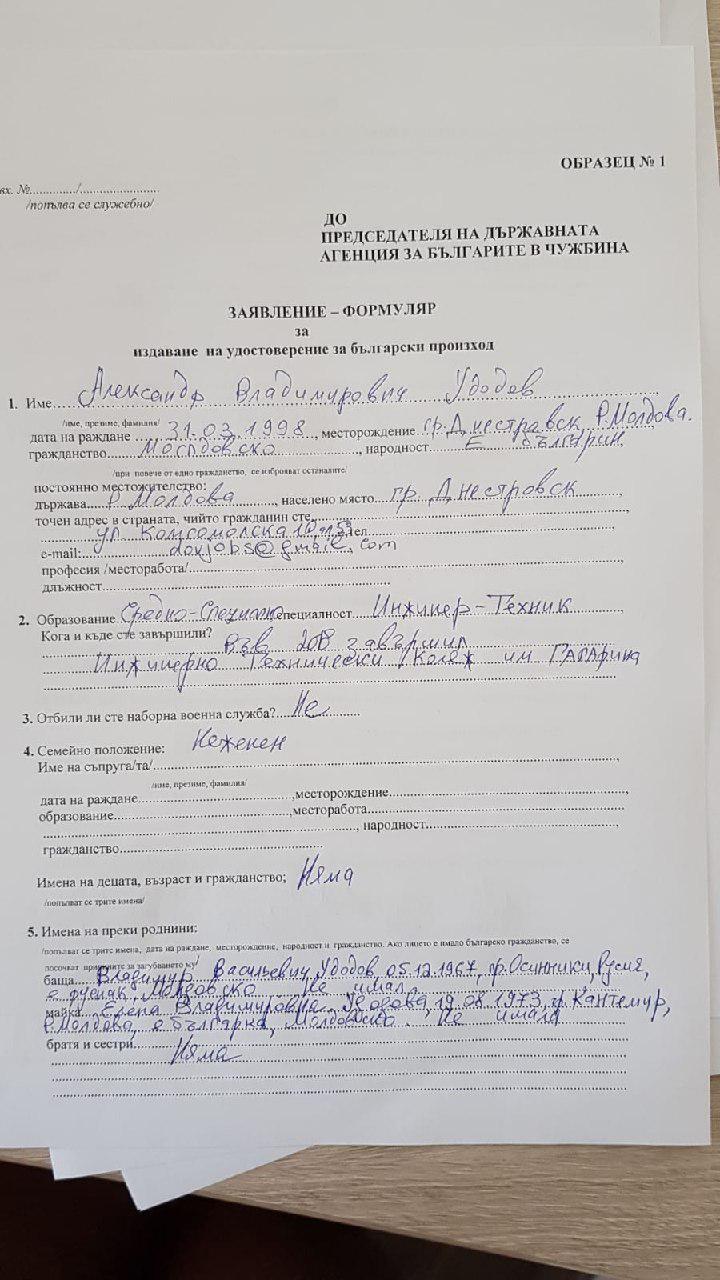 вх. №............/........................
/попълва се служебно/
ОБРАЗЕЦ № 1
ДО
ПРЕДСЕДАТЕЛЯ НА ДЪРЖАВНАТА
АГЕНЦИЯ ЗА БЪЛГАРИТЕ В ЧУЖБИНА
ЗАЯВЛЕНИЕ – ФОРМУЛЯР
за
издаване на удостоверение за български произход
1. Име Александр Владимирович Удодов
/име, презиме, фамилия/
дата на раждане 31.03.1998, месторождение гр. Днестровск, Р. Молдова.
гражданство Молдовско, народност Е българин
/при повече от едно гражданство, се изброяват останалите/
постоянно местожителство:
държава Р Молдова, населено място гр. Днестровск
точен адрес в страната, чийто гражданин сте
ул. Комсомолска тел
e-mail: @gmail.com
професия /месторабота/
длъжност
2. Образование Средно-Специално специалност Инжинер-Техник
Кога и къде сте завършили?
завършил
Инжинерно Технически Колеж им Гагарина
3. Отбили ли сте наборна военна служба? Не
4. Семейно положение: Неженен
Име на съпруга/та/
/име, презиме, фамилия/
дата на раждане, месторождение
образование, месторабота
, народност
гражданство
Имена на децата, възраст и гражданство; Няма
/попълват се трите имена/
5. Имена на преки роднини:
/попълват се трите имена, дата на раждане, месторождение, народност и гражданство. Ако лицето е имало българско гражданство, се
посочват причините за загубването му/
баща Владимир Васильевич Удодов, 05.12.1967, гр. Осинники, Русия,
е руснак, Молдовско Не имал.
майка Елена Владимировна Удодова, 19.08.1973, с. Кантемир,
Р. Молдова, е българка, Молдовско. Не имала
братя и сестри Няма